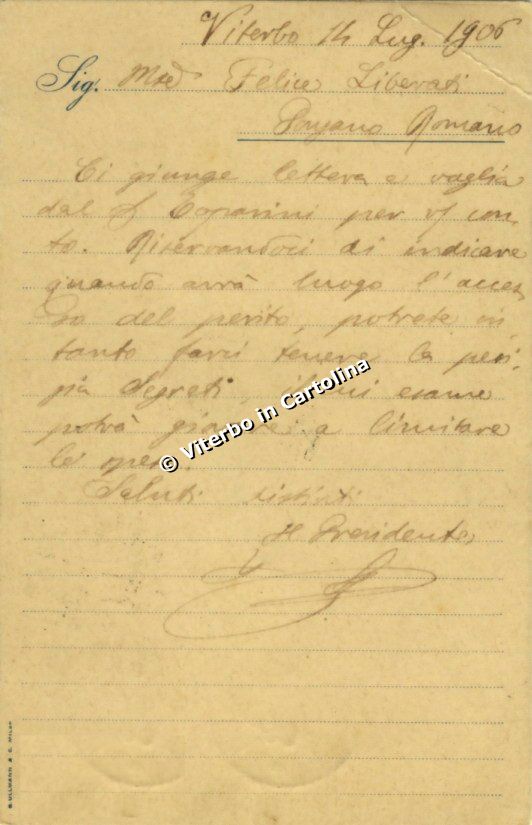 Viterbo 14 Lug. 1906
Sig. Felice Liberati
Romano
Ci giunge lettera e vaglia
dal per con-
to. Riservandoci di indicare
quando avrà luogo l'acces
so del perito, potrete in
tanto farci tenere la peri-
zia Segreti, il cui esame
potrà giovare a limitare
le spese.
Saluti distinti
Il Presidente
© Viterbo in Cartolina